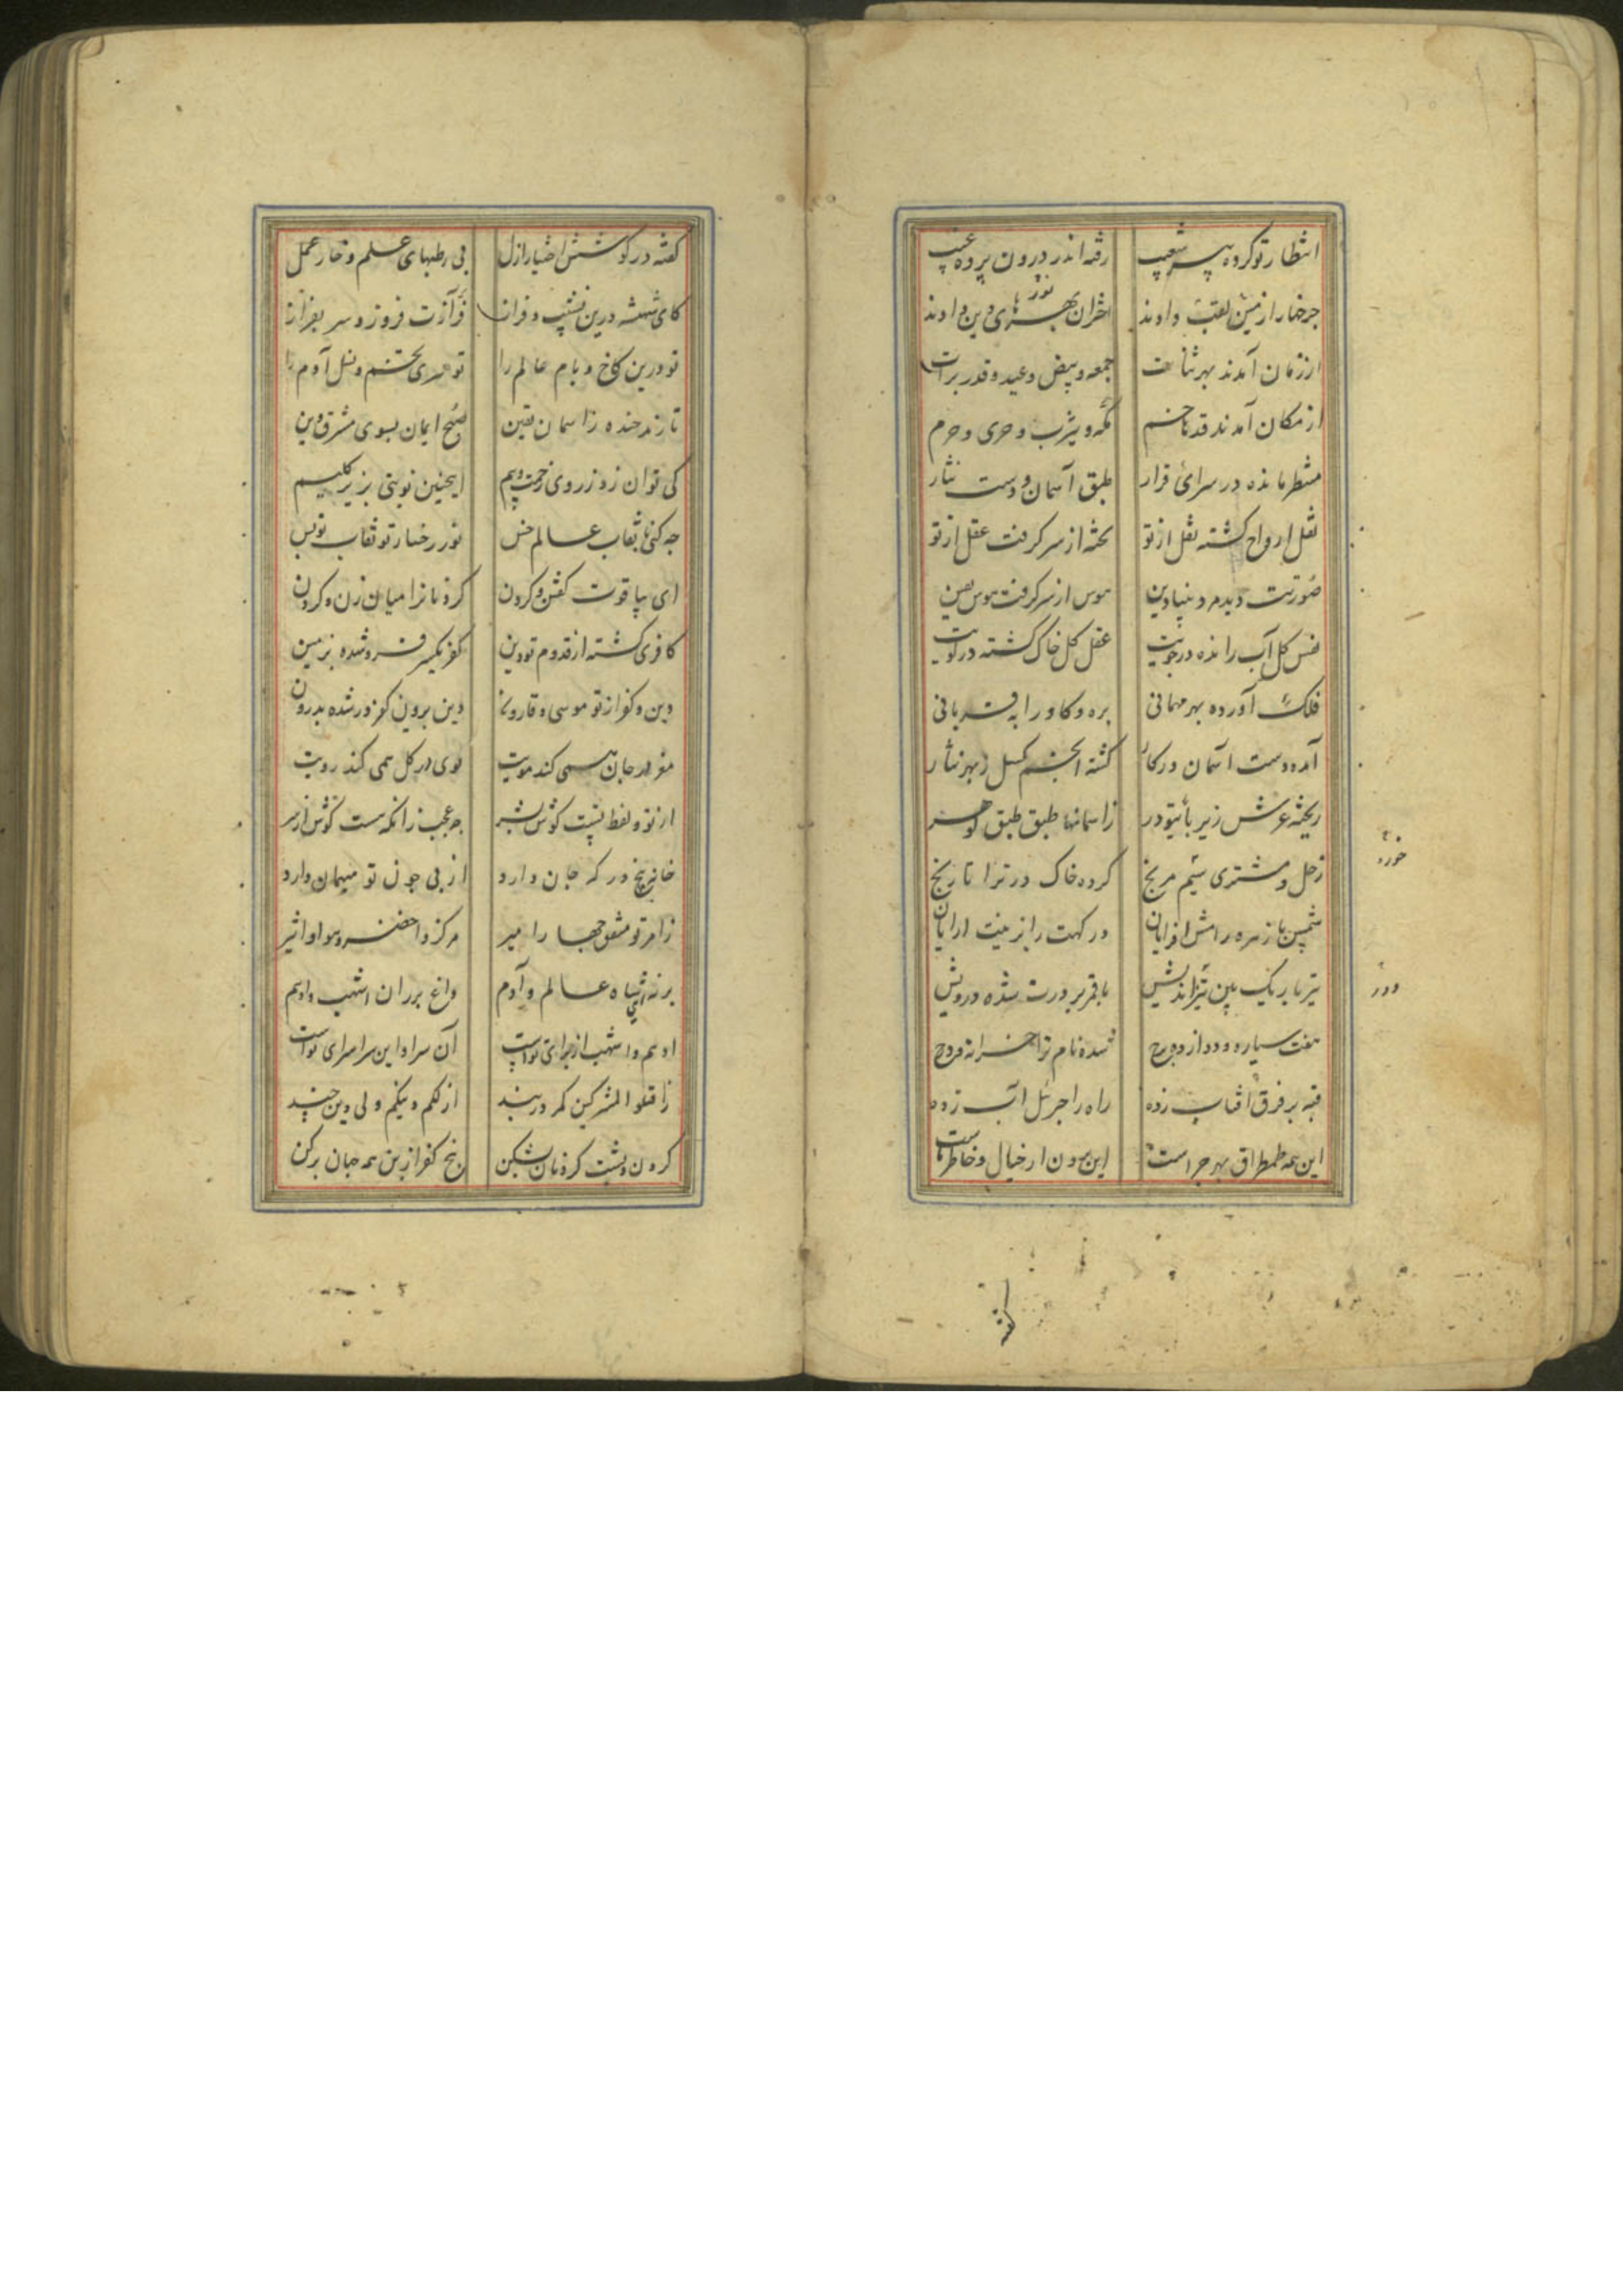 انتظار تو کرده پیر شعیب رفته اندر درون پرده غیب
چرخها را زمین لقب داوند اختران بهرهای دین داوند
نور
از زمان آمدند بهر ثنات جمعه و بیض و عید و قدر و برات
از مکان آمدند قد ناخم مکه و یثرب و حری و حرم
منتظر مانده در سرای قرار طبق آسمان و دست نثار
نقل ارواح گشته نقل از تو تخته از سر گرفت عقل از تو
صورتت دید مر و بنیادین هوس از سر گرفت هوس
نفس کل آب رانده در جویت عقل کل خاک گشته در کویت
فلک آورده بهر مهمانی بره و کاو را به قربانی
آمده دست آسمان در کار گشته انجم گسل ز بهر نثار
ریخته عرش زیر پای تو در ز آسمانها طبق طبق گوهر
زحل و مشتری سیم مریخ کرده خاک در ترا تاریخ
خورد
شمس با زهره رامش افزایان درگهت را بزینت آرایان
تیر باریک بین تیز اندیش با قمر بر درت شده درویش
دور
هفت سیاره و دوازده برج شده نام ترا خزانه و درج
قبه بر فرق آفتاب زده راه را جبرئل آب زده
این همه طمطراق بهر چراست این برون از خیال و خاطر ماست
گفته
گفته در گوشش اختیار ازل بی رطبهای علم و خار عمل
کای شهنشه درین نشیب و فراز فر آزت فروز و سر بفراز
تو درین کاخ و بام عالم را تو مدی تخم و نسل آدم را
تا زند خنده ز آسمان یقین صبح ایمان بسوی مشرق دین
کی توان زد ز روی زحمت و بیم اینچنین نوبتی بزیر گلیم
چه کنی با نقاب عالم خس نور رخسار تو نقاب تو بس
ای بیاقوت کفتن و کردن کردنانرا میان زن و کردن
کافری گشته از قدوم تو دین کفر یکسر فرو شده بزمین
دین و کفر از تو موسی و قارون دین برون کفر در شده بدرون
مغز در جان همی کند مویت بوی در کل همی کند رویت
از تو و لفظ تست گوش بشر چه عجب زانکه هست گوش از سر
خانه پنج در که جان دارد از پی چون تو میهمان دارد
ز امر تو مشق جمها را میر مرکز و اخضر و هوا و اثیر
بر نه ای شاه عالم و آدم داغ بر ران اشهب و ادهم
ادهم و اشهب از برای تو است آن سرا و این سرا سرای تو است
ز اقتلوا المشرکین کمر در بند از لکم دینکم ولی دین چند
کردن و پشت کردنان بشکن بیخ کفر از بن همه جهان برکن